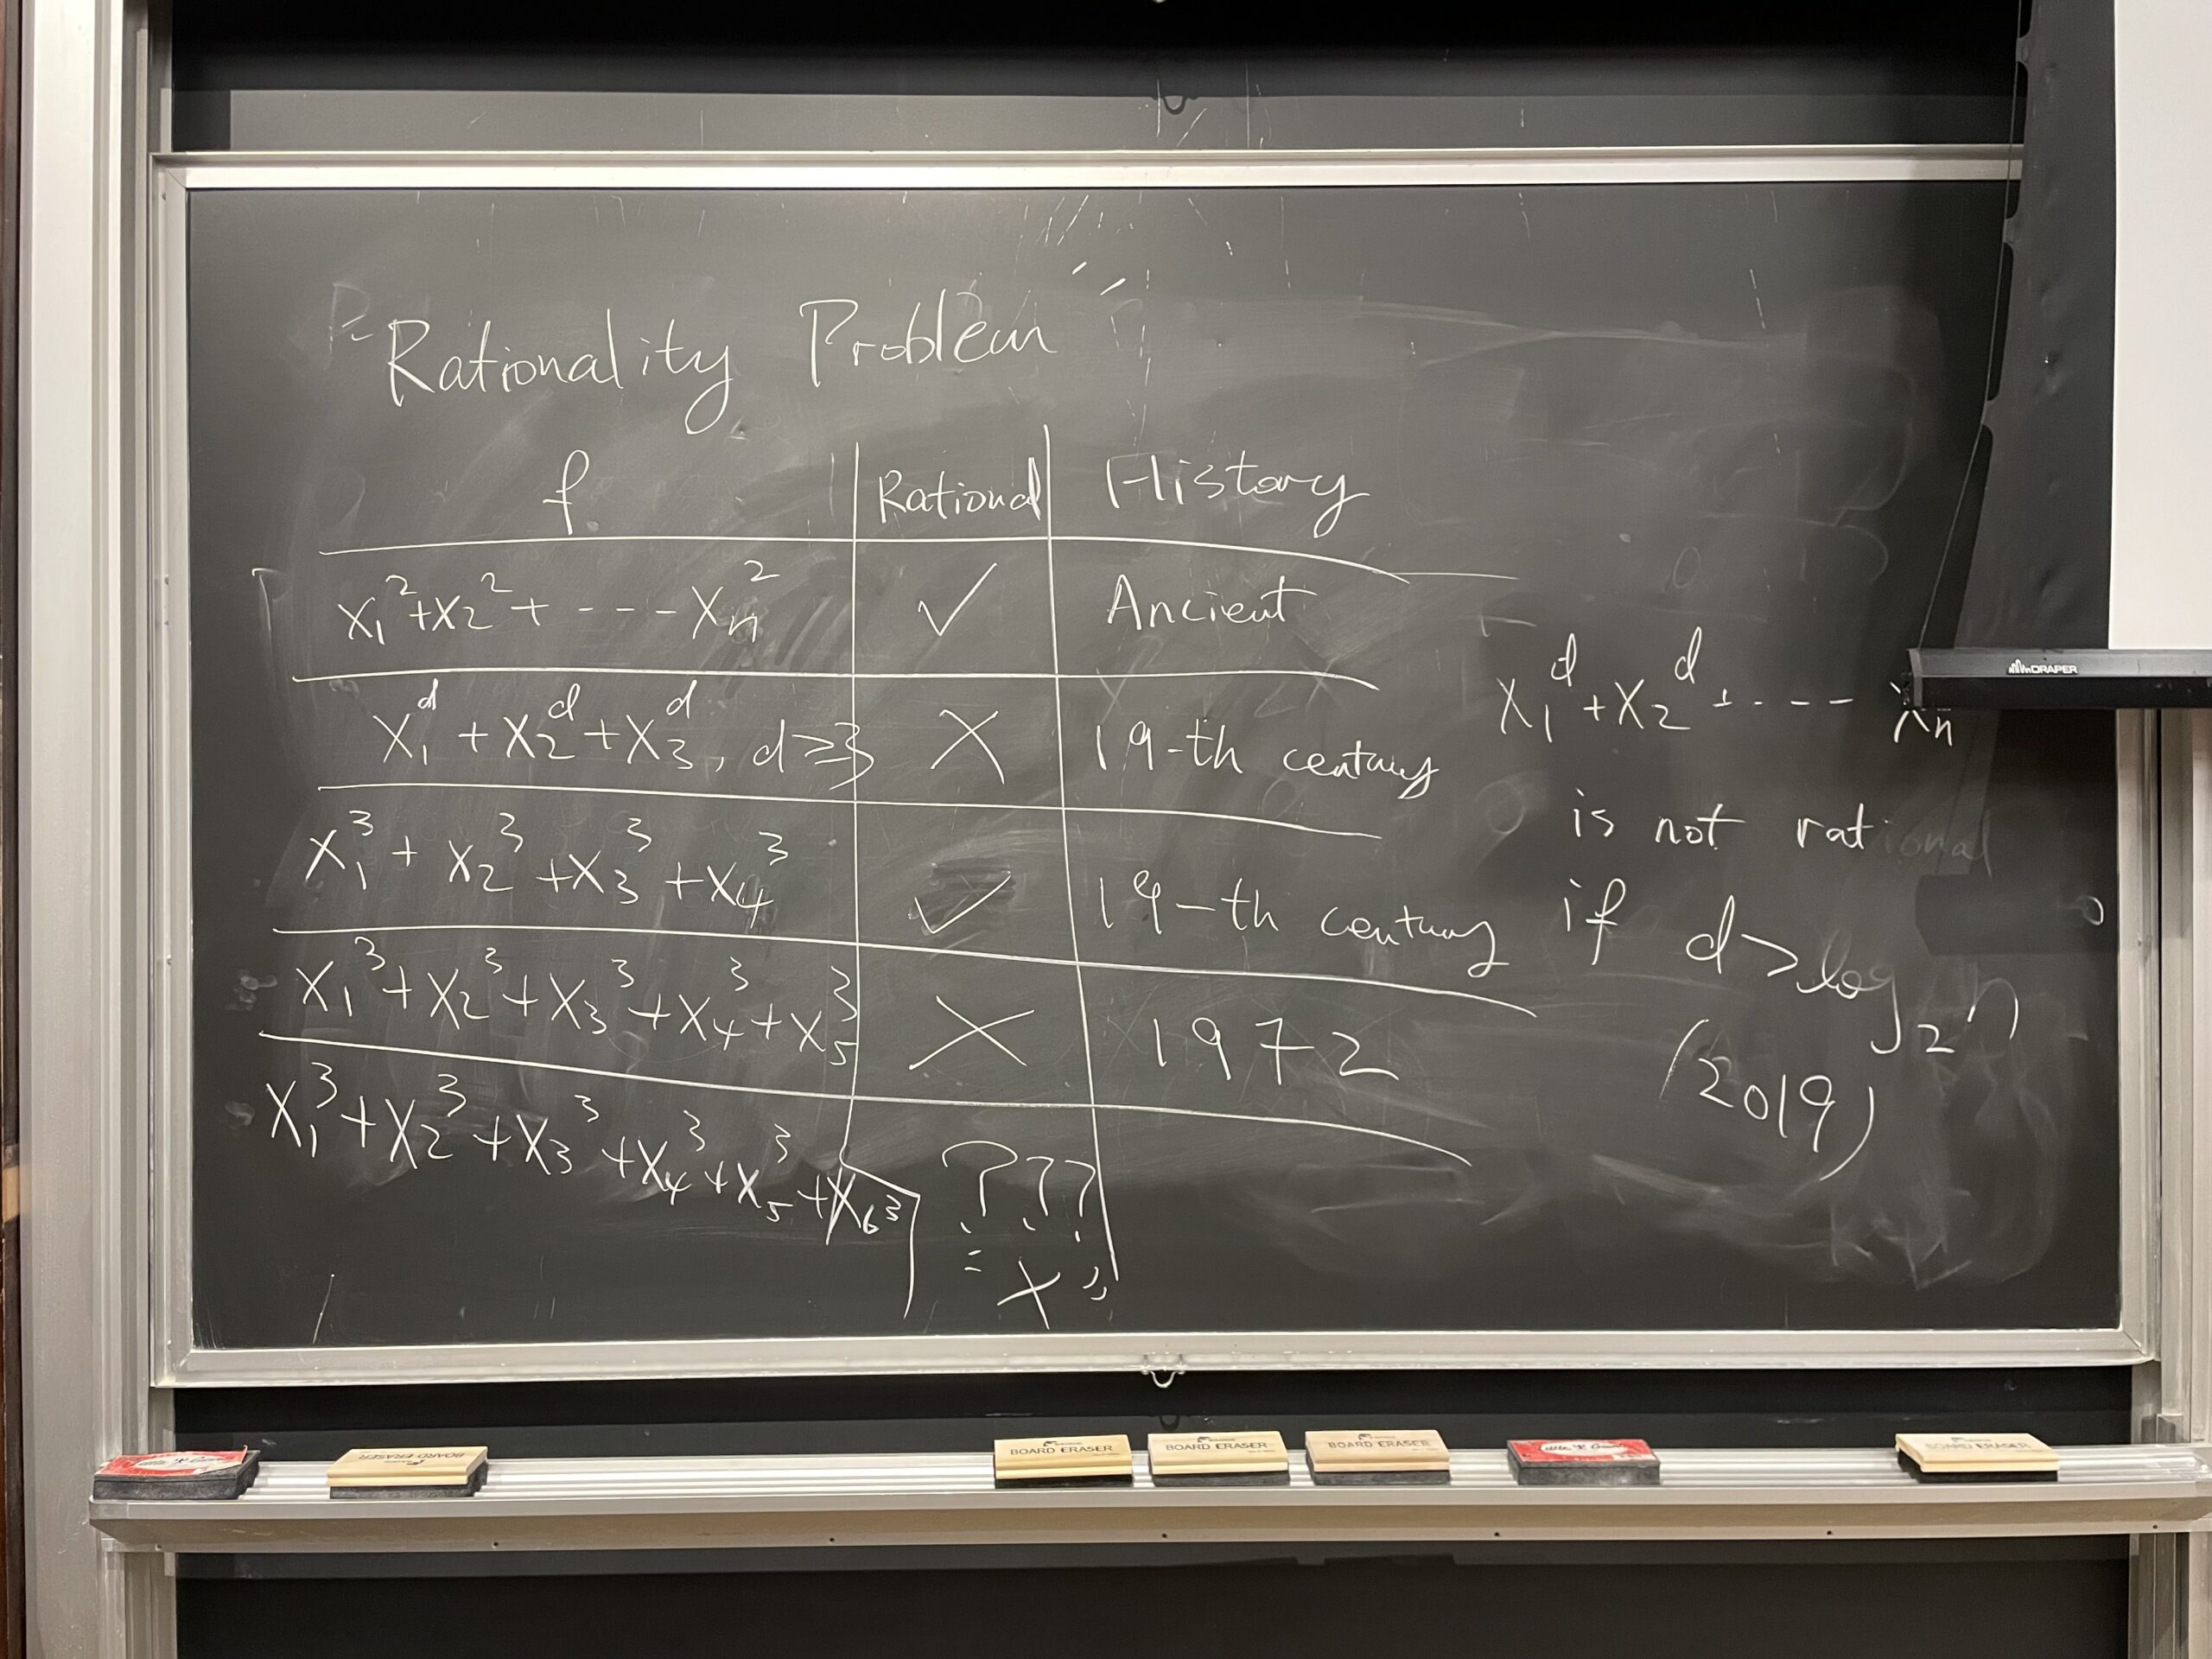 Rationality Problem
f Rational History
x₁² + x₂² + - - - xₙ² ✓ Ancient
x₁ᵈ + x₂ᵈ + x₃ᵈ, d ≥ 3 X 19-th century
x₁³ + x₂³ + x₃³ + x₄³ ✓ 19-th century
x₁³ + x₂³ + x₃³ + x₄³ + x₅³ X 1972
x₁³ + x₂³ + x₃³ + x₄³ + x₅³ + x₆³ ???
" X "
x₁ᵈ + x₂ᵈ + - - - xₙ
is not rational
if d > log₂ n
(2019)
DRAPER
BOARD ERASER
BOARD ERASER
BOARD ERASER
BOARD ERASER
BOARD ERASER